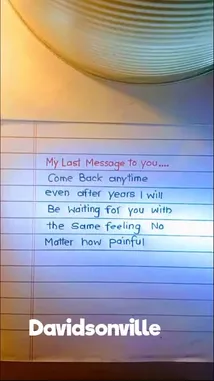 My Last Message to you....
Come Back anytime
even after years I will
Be waiting for you with
the same feeling No
Matter how painful
Davidsonville